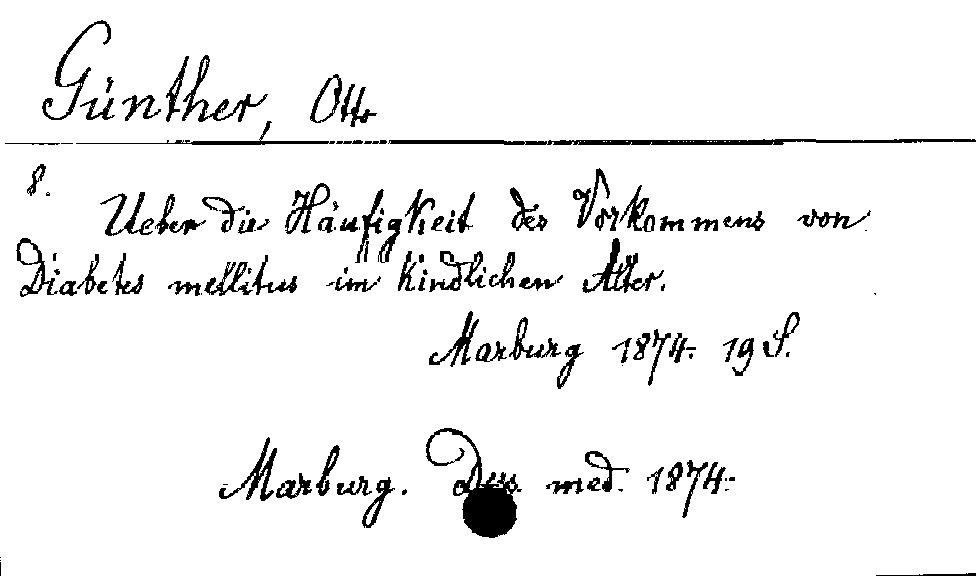 Günther, Otto
8.
Ueber die Häufigkeit des Vorkommens von
Diabetes mellitus im kindlichen Alter.
Marburg 1874. 19 S.
Marburg. Diss. med. 1874.